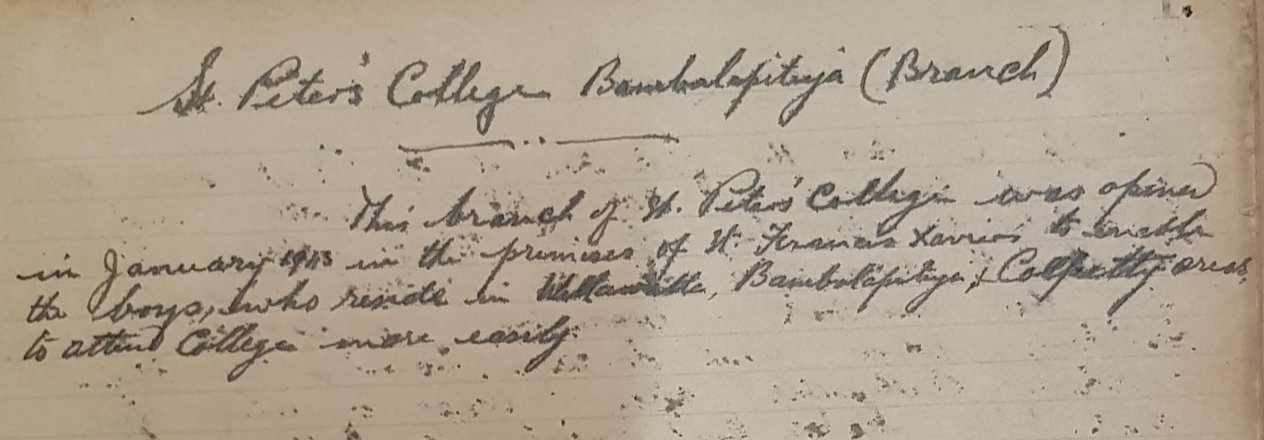 St. Peter's College Bambalapitiya (Branch)
This branch of St. Peter's College was opened
in January in the premises of St. Francis Xavier's to enable
the boys, who reside in Wellawatte, Bambalapitiya, & Colpetty areas
to attend College more easily.